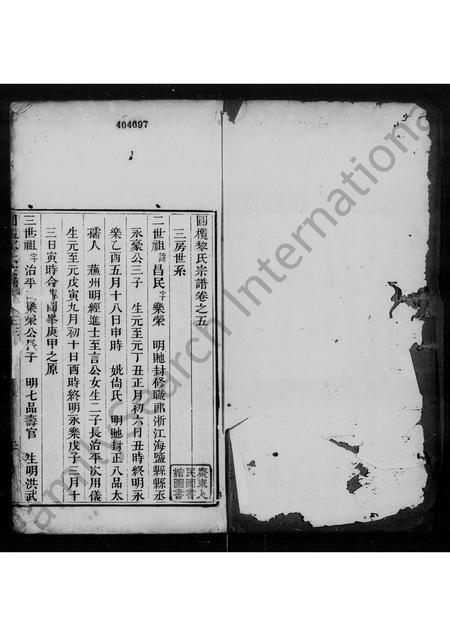 404697
圓欖黎氏宗譜卷之五
三房世系
二世祖諱昌民字樂榮 明貤封修職郎浙江海鹽縣縣丞
永豪公三子 生元至元丁丑正月初六日丑時終明永
樂乙酉五月十八日申時 妣尙氏 明貤封正八品太
孺人 蕉州明經進士至言公女生二子長治平次用儀
生元至元戊寅九月初十日酉時終明永樂戊子三月十
三日寅時合 庚甲之原
三世祖字治平 樂榮公長子 明七品壽官 生明洪武
廣東人
民圖書
館圖書
FamilySearch International